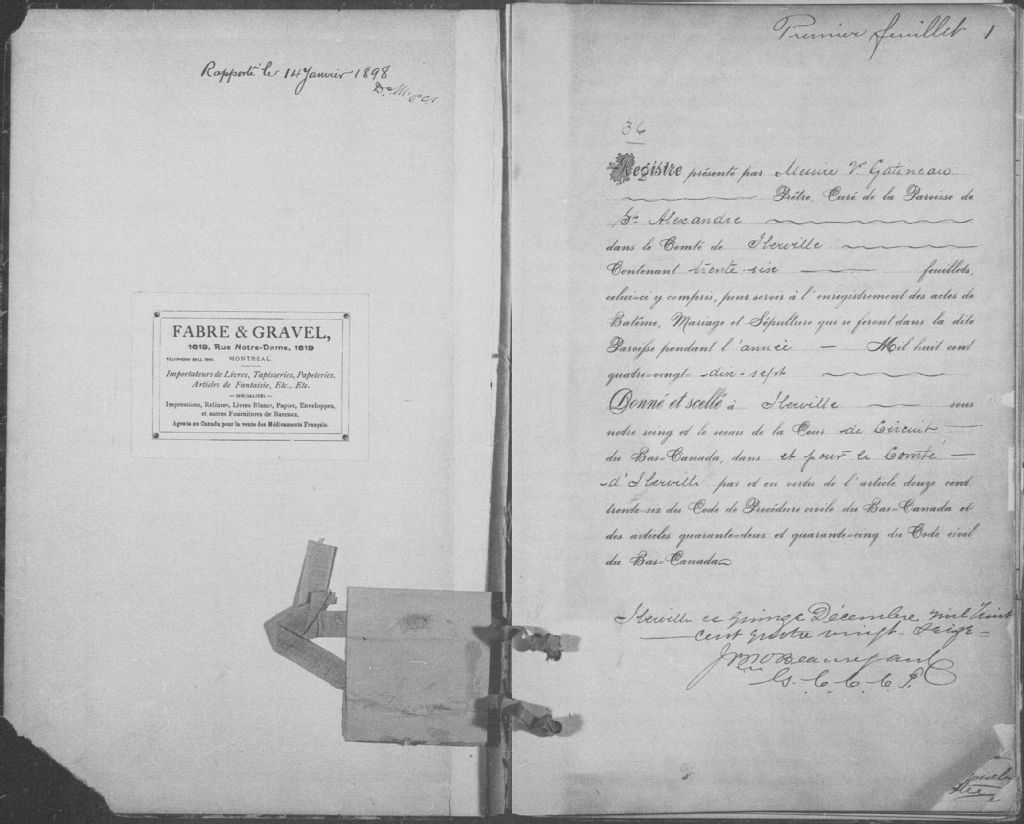 Rapporté le 14 Janvier 1898
FABRE & GRAVEL,
1619, Rue Notre-Dame, 1619
MONTREAL.
Importateurs de Livres, Tapisseries, Papeteries,
Articles de Fantaisie, Etc., Etc.
— SPÉCIALITÉS —
Impressions, Reliures, Livres Blancs, Papier, Enveloppes,
et autres Fournitures de Bureaux.
Agents au Canada pour la vente des Médicaments Français.
Premier feuillet 1
36
Registre présenté par Messire Vr Gatineau
Prêtre, Curé de la Paroisse de
St Alexandre
dans le Comté de Iberville
Contenant trente-six feuillets,
celui-ci y compris, pour servir à l'enregistrement des actes de
Batême, Mariage et Sépulture qui se feront dans la dite
Paroisse pendant l'année — Mil huit cent
quatre-vingt-dix-sept
Donné et scellé à Iberville sous
notre seing et le sceau de la Cour de Circuit
du Bas-Canada, dans et pour le Comté
d'Iberville par et en vertu de l'article douze cent
trente-six du Code de Procédure civile du Bas-Canada et
des articles quarante-deux et quarante-cinq du Code civil
du Bas-Canada
Iberville ce quinze Décembre mil huit
cent quatre vingt-seize
Beauregard
G. C. C. C. I.